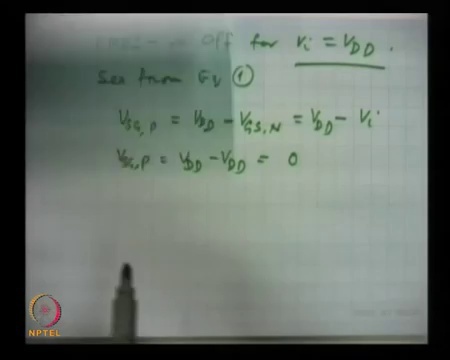 PMOS is Off for Vi = VDD.
See from Eq ①
VSG,P = VDD - VGS,N = VDD - Vi
VSG,P = VDD - VDD = 0
NPTEL